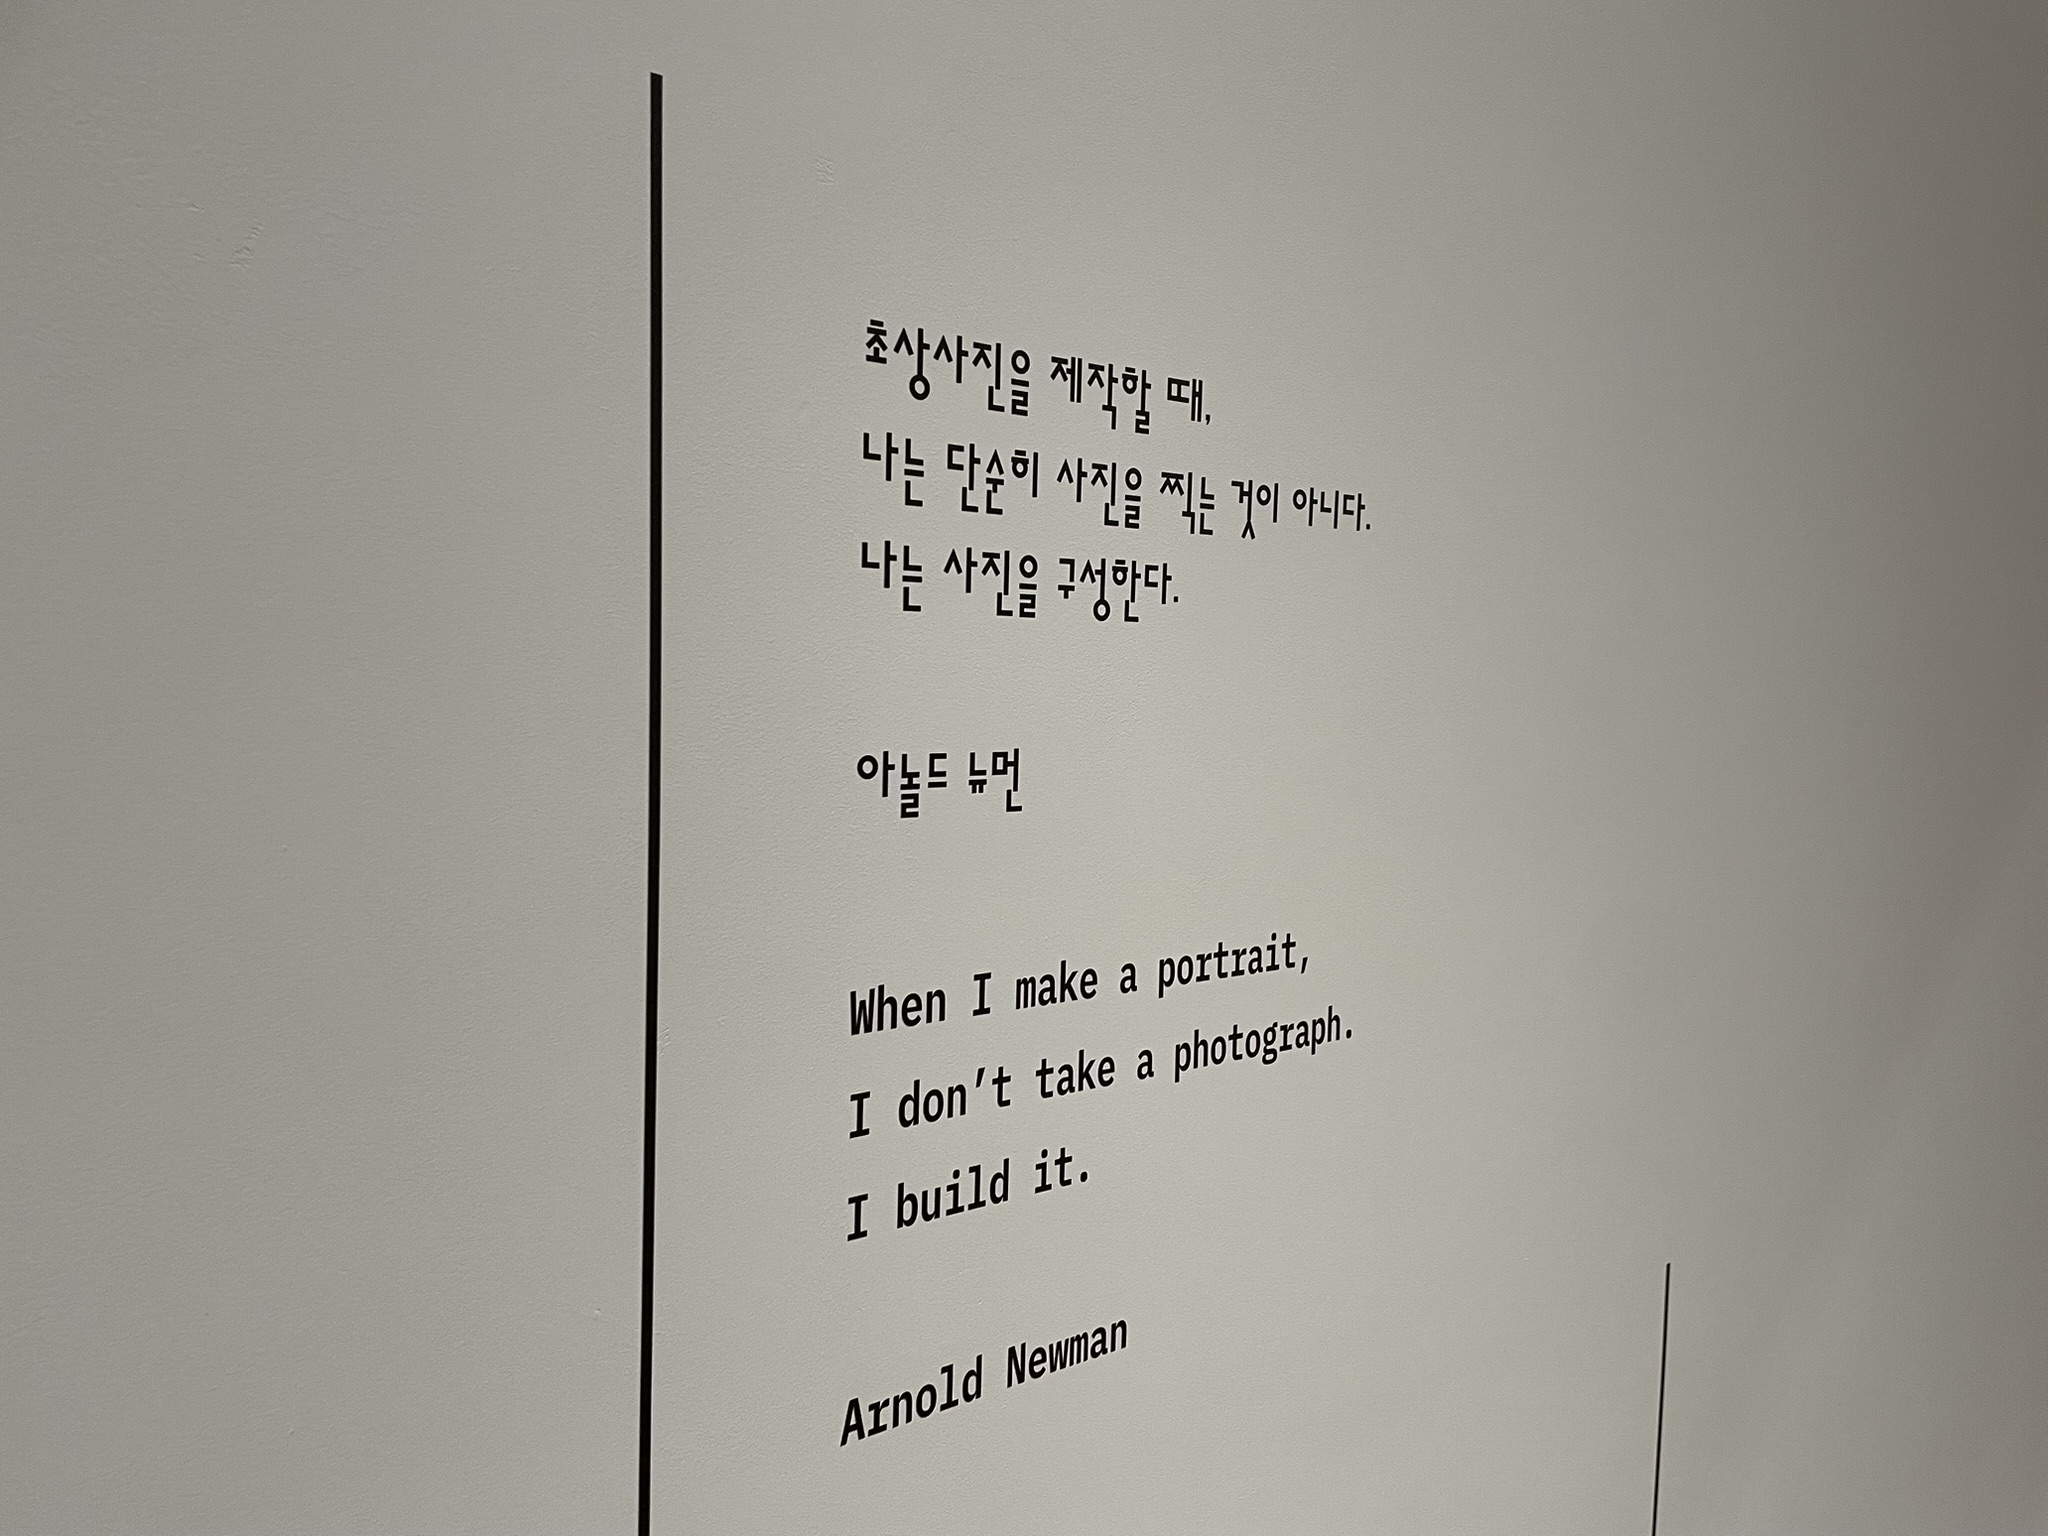 초상사진을 제작할 때,
나는 단순히 사진을 찍는 것이 아니다.
나는 사진을 구성한다.
아놀드 뉴먼
When I make a portrait,
I don’t take a photograph.
I build it.
Arnold Newman